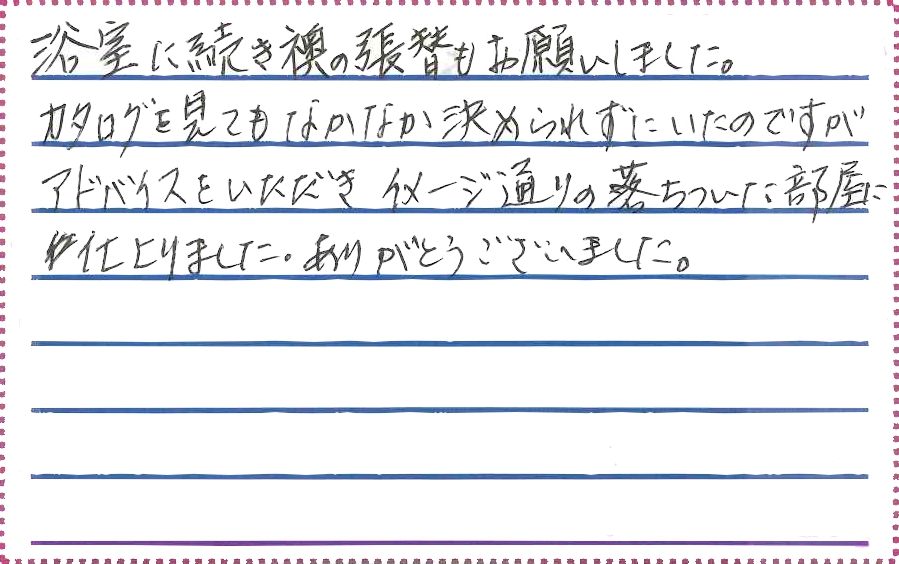 浴室に続き襖の張替もお願いしました。
カタログを見てもなかなか決められずにいたのですが
アドバイスをいただき イメージ通りの落ちついた部屋に
仕上りました。ありがとうございました。